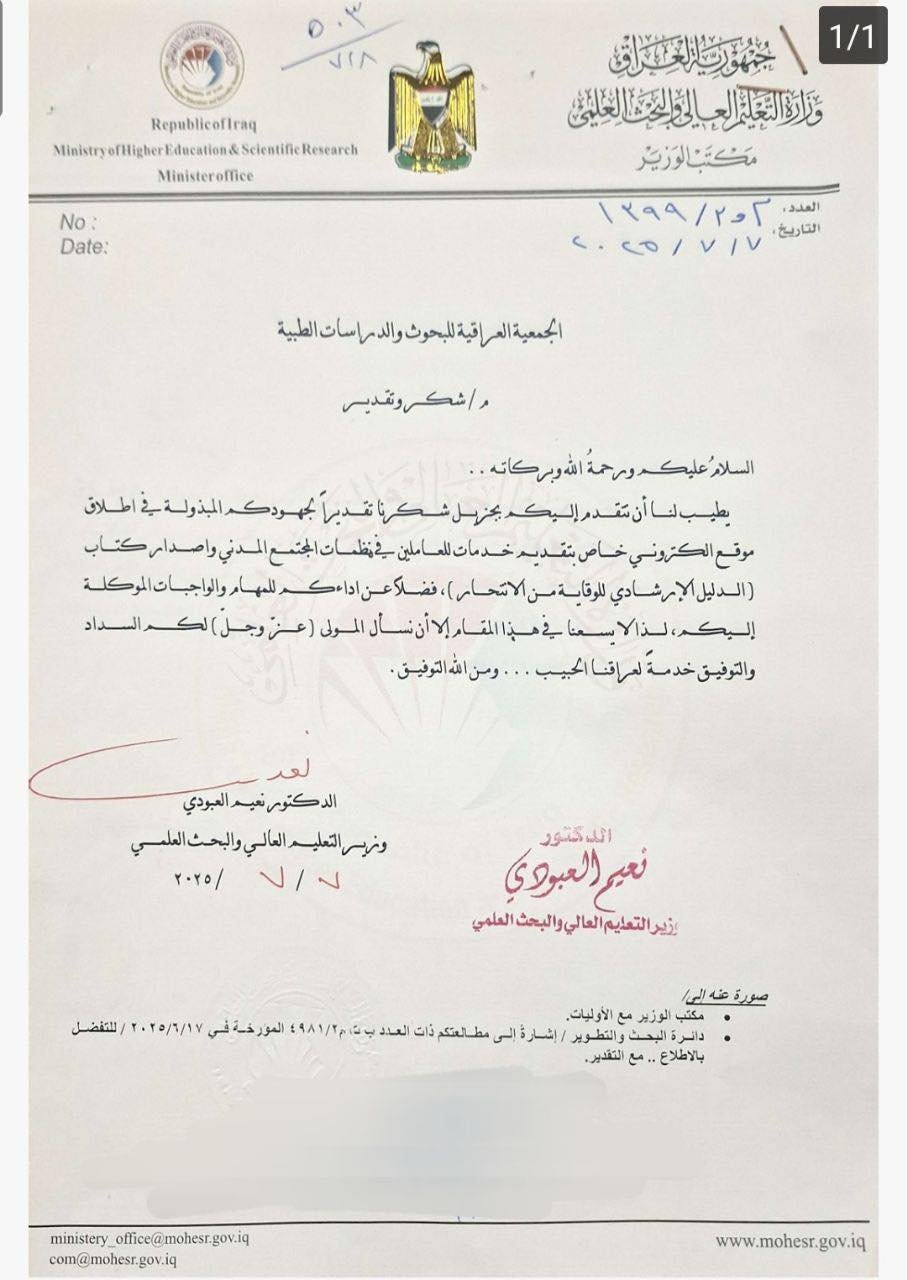 1/1
٥٠٣
٧/٨
جمهورية العراق
وزارة التعليم العالي والبحث العلمي
مكتب الوزير
Republic of Iraq
Ministry of Higher Education & Scientific Research
Minister office
العدد: م و ٢/ ١٣٩٩
التاريخ: ٧ / ٧ / ٢٠٢٥
No :
Date:
الجمعية العراقية للبحوث والدراسات الطبية
م/ شكر وتقدير
السلامُ عليكم ورحمةُ الله وبركاته ..
يطيب لنا أن نتقدم إليكم بجزيل شكرنا تقديراً لجهودكم المبذولة في اطلاق
موقع الكتروني خاص بتقديم خدمات للعاملين في نظمات المجتمع المدني واصدار كتاب
(الدليل الإرشادي للوقاية من الانتحار)، فضلاً عن اداءكم للمهام والواجبات الموكلة
إليكم، لذا لا يسعنا في هذا المقام إلا أن نسأل المولى (عزّ وجلّ) لكم السداد
والتوفيق خدمةً لعراقنا الحبيب ... ومن الله التوفيق.
الدكتور نعيم العبودي
وزير التعليم العالي والبحث العلمي
٧ / ٧ /٢٠٢٥
الدكتور
نعيم العبودي
وزير التعليم العالي والبحث العلمي
صورة عنه إلى/
• مكتب الوزير مع الأوليات.
• دائرة البحث والتطوير / إشارةً إلى مطالعتكم ذات العدد ب ت م٤٩٨١/٢ المؤرخة في ٢٠٢٥/٦/١٧ / للتفضل
بالاطلاع .. مع التقدير.
ministery_office@mohesr.gov.iq
com@mohesr.gov.iq
www.mohesr.gov.iq